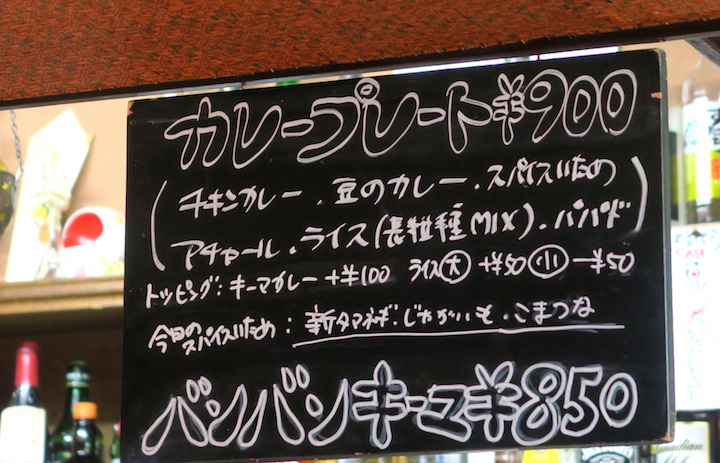 カレープレート¥900
(チキンカレー、豆のカレー、スパイスいため
アチャール、ライス(長粒種MIX)、パパド)
トッピング:キーマカレー+¥100 ライス大+¥50 小−¥50
今日のスパイスいため:新タマネギ・じゃがいも・こまつな
バンバンキーマ¥850